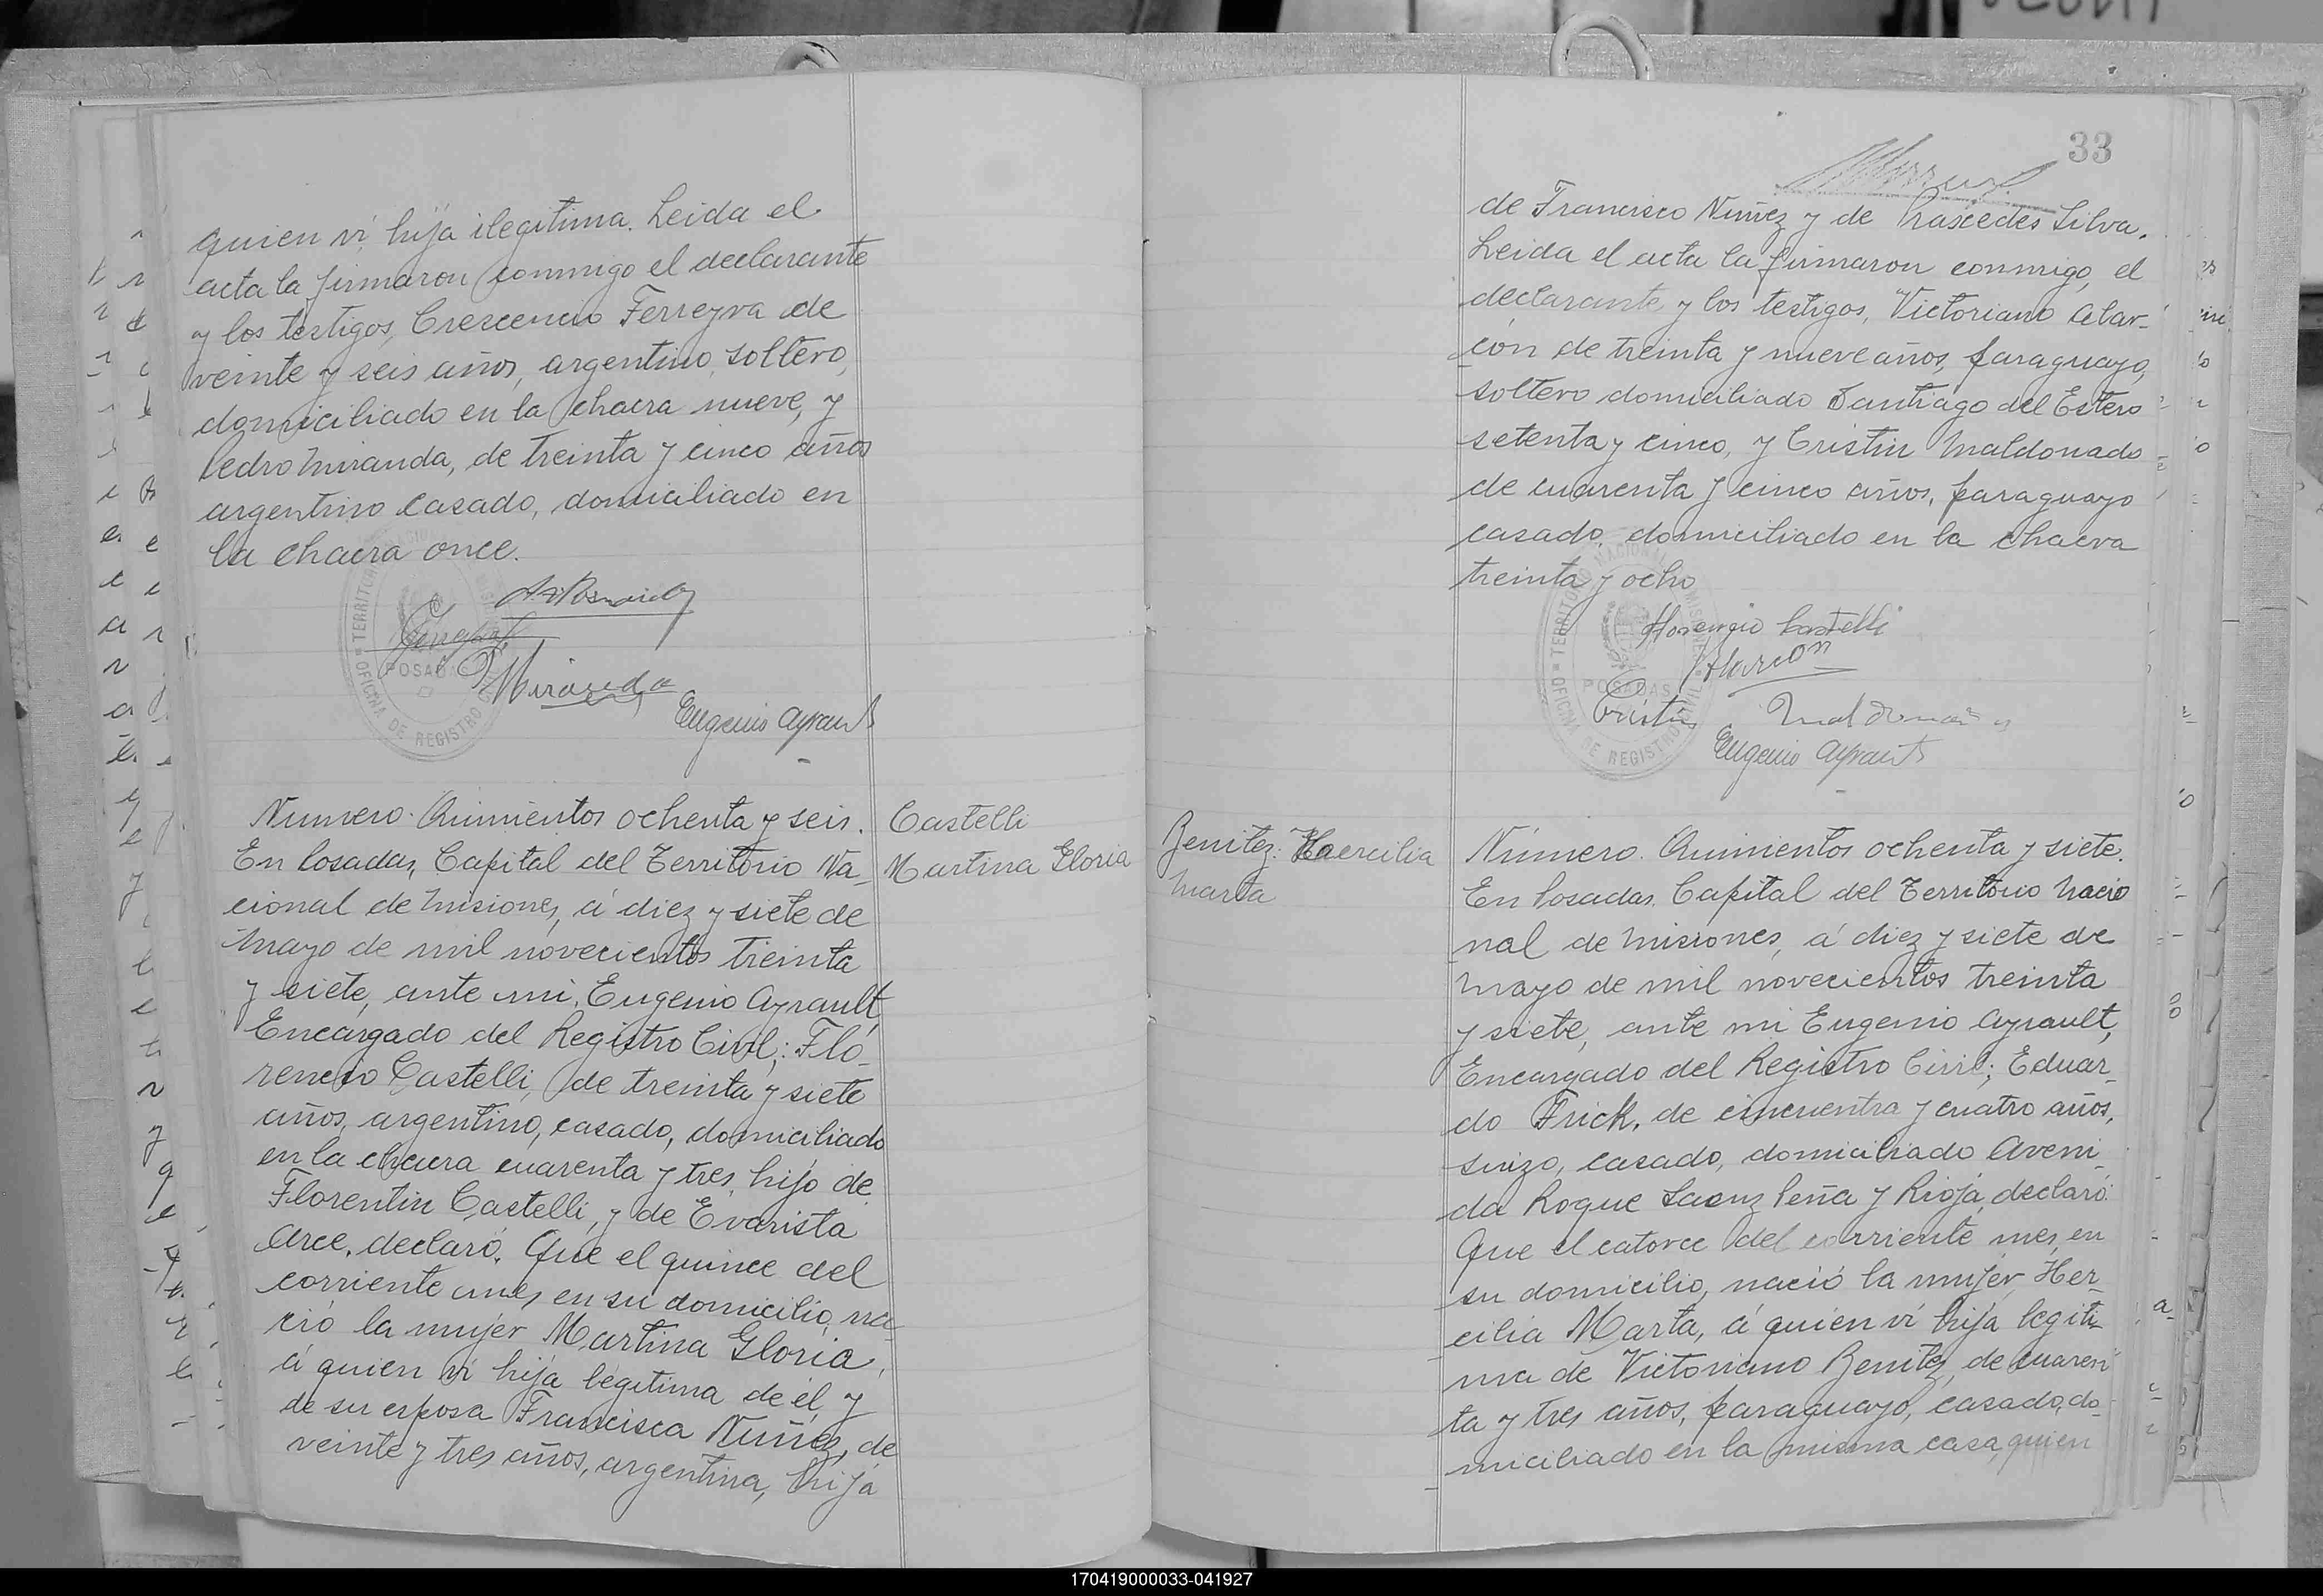 quien ví hija ilegitima. Leida el
acta la firmaron conmigo el declarante
y los testigos, Crescencio Ferreyra de
veinte y seis años, argentino, soltero,
domiciliado en la chacra nueve, y
Pedro Miranda, de treinta y cinco años
argentino casado, domiciliado en
la chacra once.
Miranda
Eugenio Ayrault
TERRITORIO NACIONAL
POSADAS
OFICINA DE REGISTRO CIVIL
Numero. Quinientos ochenta y seis.
En Posadas, Capital del Territorio Na-
cional de Misiones, á diez y siete de
Mayo de mil novecientos treinta
y siete, ante mi, Eugenio Ayrault,
Encargado del Registro Civil; Flo-
rencio Castelli, de treinta y siete
años, argentino, casado, domiciliado
en la chacra cuarenta y tres, hijo de
Florentin Castelli, y de Evarista
Arce, declaró. Que el quince del
corriente mes, en su domicilio, na-
ció la mujer Martina Gloria,
á quien ví hija legitima de él, y
de su esposa Francisca Nuñez, de
veinte y tres años, argentina, hija
Castelli
Martina Gloria
33
de Francisco Nuñez y de Prascedes Silva.
Leida el acta la firmaron conmigo, el
declarante y los testigos, Victoriano Alar-
cón de treinta y nueve años, paraguayo,
soltero domiciliado Santiago del Estero
setenta y cinco, y Cristin Maldonado
de cuarenta y cinco años, paraguayo
casado, domiciliado en la chacra
treinta y ocho
Florencio Castelli
Alarcon
Cristin Maldonado
Eugenio Ayrault
TERRITORIO NACIONAL MISIONES
POSADAS
OFICINA DE REGISTRO CIVIL
Benitez. Haercilia
Marta
Número. Quinientos ochenta y siete.
En Posadas, Capital del Territorio Nacio
nal de Misiones, á diez y siete de
Mayo de mil novecientos treinta
y siete, ante mi Eugenio Ayrault,
Encargado del Registro Civil; Eduar-
do Frick, de cincuenta y cuatro años,
suizo, casado, domiciliado Aveni-
da Roque Saenz Peña y Rioja, declaró:
Que el catorce del corriente mes, en
su domicilio, nació la mujer, Her-
cilia Marta, á quien ví hija legiti-
ma de Victoriano Benitez, de cuaren-
ta y tres años, paraguayo, casado, do-
miciliado en la misma casa, quien
170419000033-041927